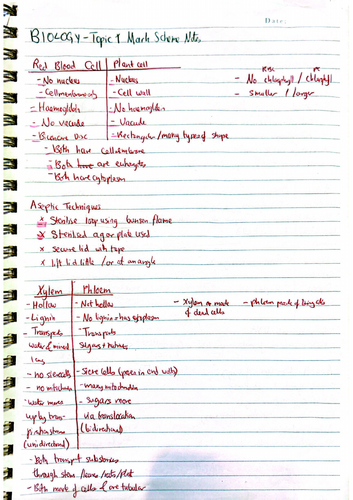 Date:
BIOLOGY - Topic 1 Mark Scheme Notes
Red Blood Cell | Plant cell
- No nucleus - Nucleus - No chlorophyll / chlorophyll
- Cell membrane only - Cell wall - smaller / larger
- Haemoglobin - No haemoglobin
- No vacuole - Vacuole
- Biconcave Disc - Rectangular / many types of shape
- Both have cell membrane
- Both are eukaryotes
- Both have cytoplasm
Aseptic Techniques
x Sterilise loop using bunsen flame
x Sterilised agar plate used
x secure lid with tape
x lift lid little / or at an angle
Xylem | Phloem
- Hollow - Not hollow - Xylem made - phloem made of living cells
- Lignin - No lignin + has cytoplasm of dead cells
- Transports - Transports
water & mineral sugars +
ions
- no sieve cells - Sieve cells (pores in end walls)
- no mitochon - many mitochondria
- water moves - sugars move
up by trans- via translocation
piration stream (bidirectional)
(unidirectional)
- Both transport substances
through stem /leaves /roots /plant
- Both made of cells & are tubular